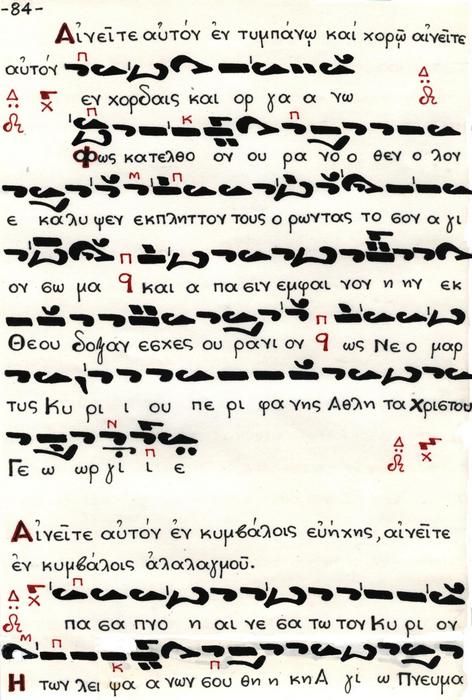 -84-
Αἰνεῖτε αὐτόν ἐν τυμπάνῳ καί χορῷ αἰνεῖτε
αὐτόν
εν χορδαις και ορ γα α νω
Φως κατελθο ον ου ρα νο ο θεν ο λον
ε καλυ ψεν εκπληττον τους ο ρωντας το σον α γι
ον σω μα και α πασιν εμφαι νον η ην εκ
Θεου δοξαν εσχες ου ρανι ον ως Νε ο μαρ
τυς Κυ ρι ι ου πε ρι φα νης Αθλη τα Χριστου
Γε ω ωρ γι ι ε
Αἰνεῖτε αὐτόν ἐν κυμβάλοις εὐήχης, αἰνεῖτε
ἐν κυμβάλοις ἀλαλαγμοῦ.
πα σα πνο η αι νε σα τω τον Κυ ρι ον
Η των λει ψα α νων σου θη η κη Α γι ω Πνευμα